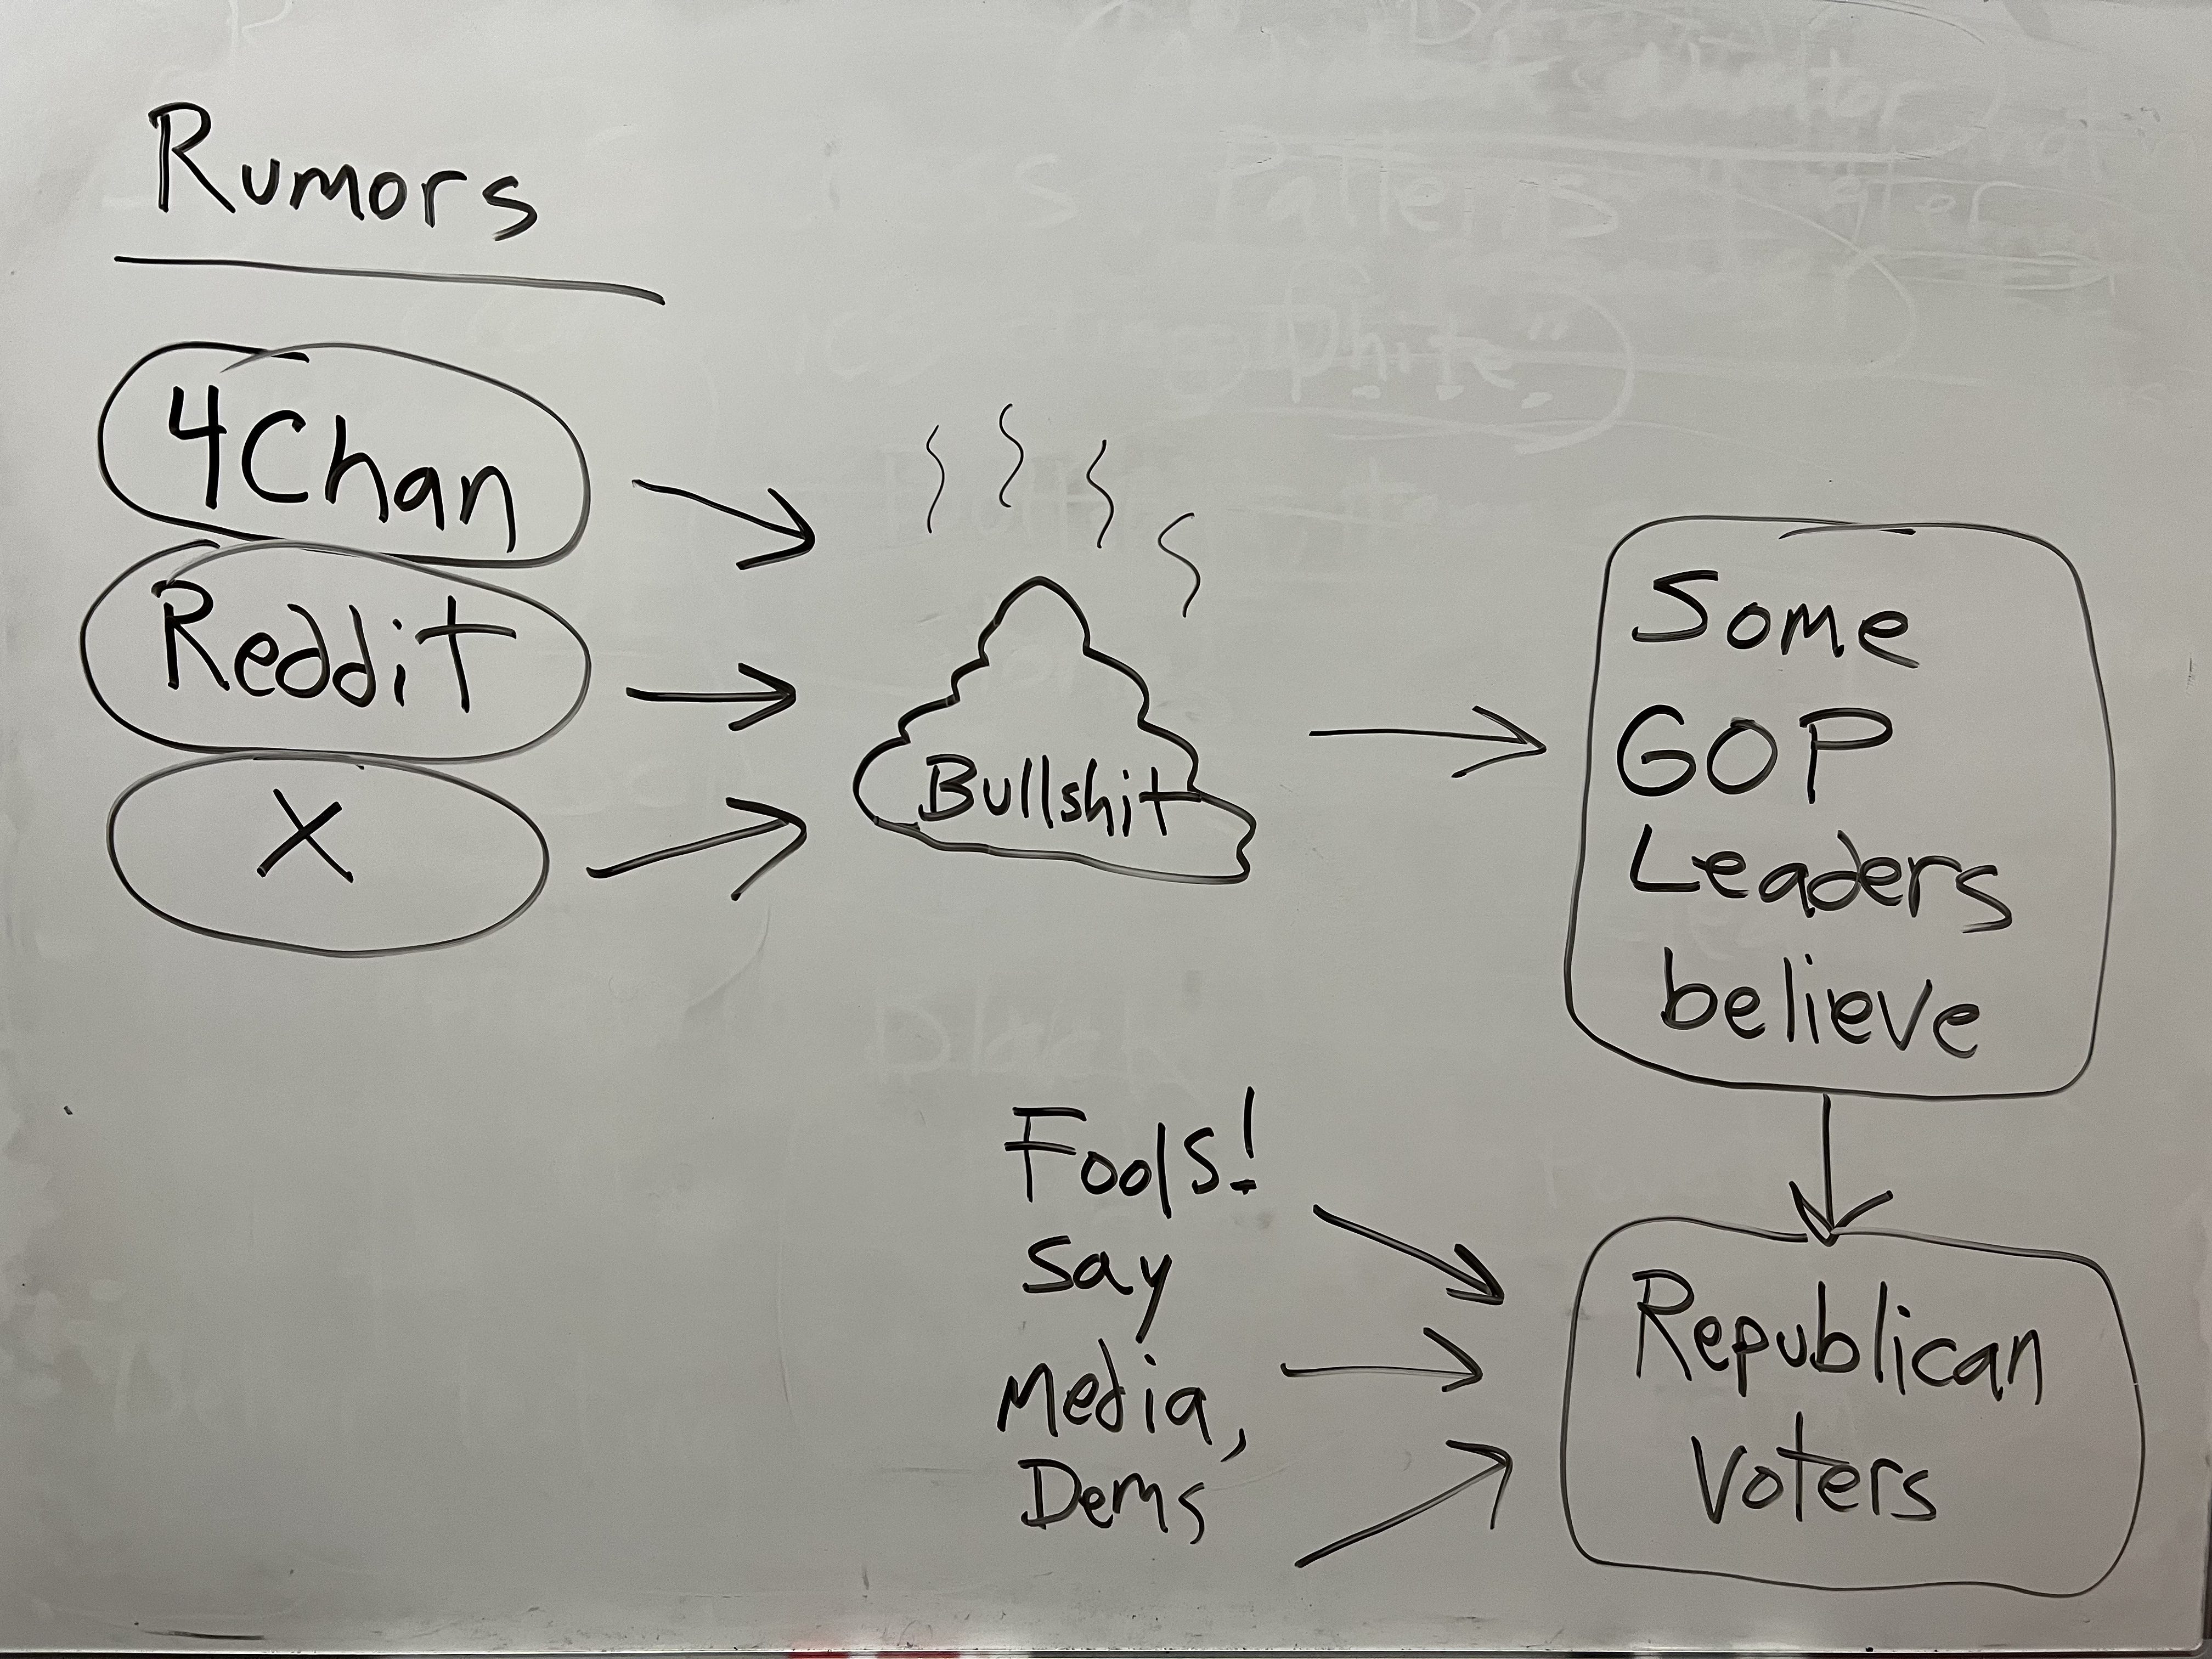 Rumors
4Chan
Reddit
X
Bullshit
Some
GOP
Leaders
believe
Fools!
say
Media,
Dems
Republican
Voters